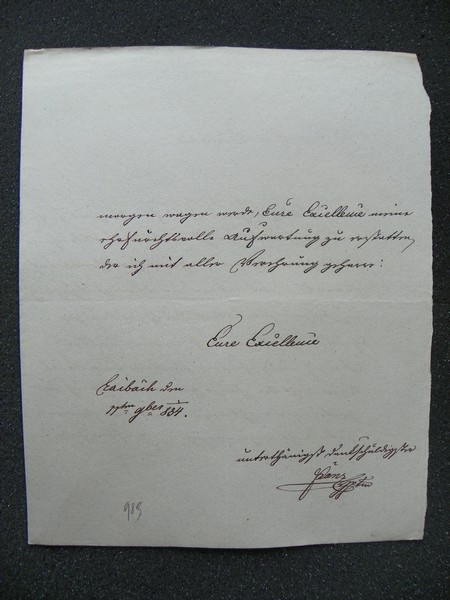 morgen wagen werde, Eure Excellenz meine
ehrfurchtsvolle Aufwartung zu erstatten,
der ich mit aller Verehrung geharre:
Eure Excellenz
Laibach den
9ber 834.
unterthänigst dankschuldigster
Hptm
983